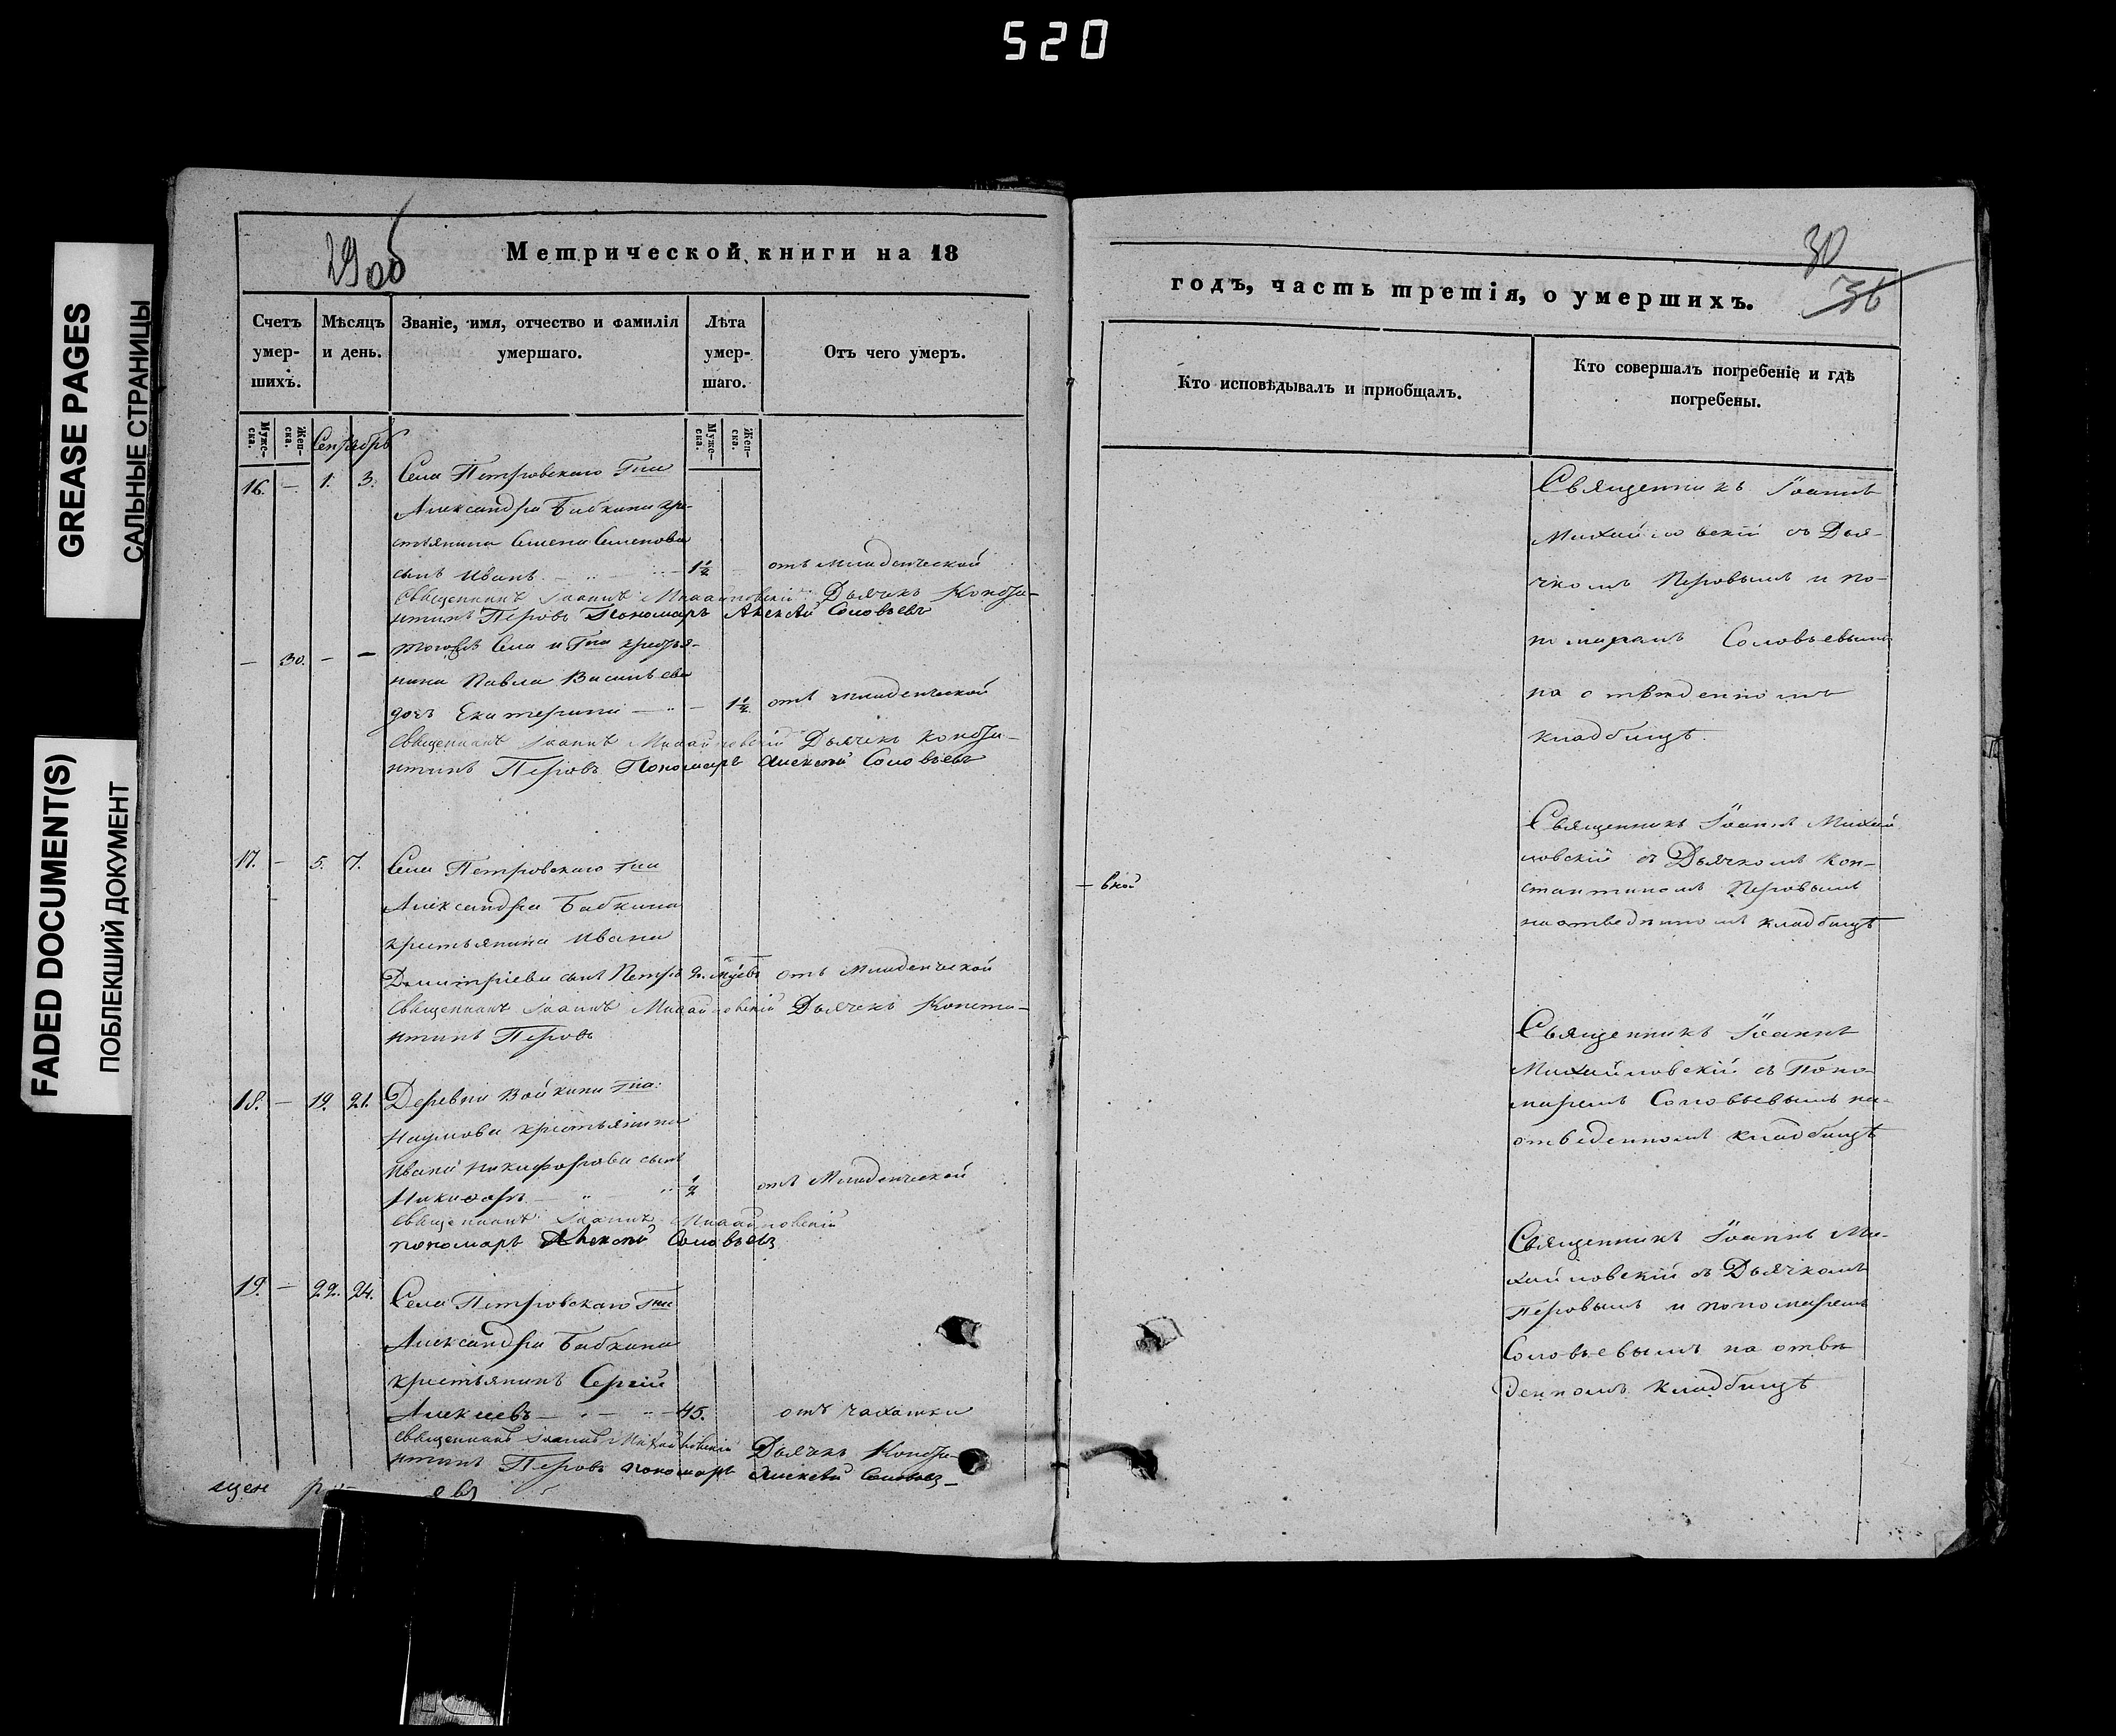 520
GREASE PAGES
САЛЬНЫЕ СТРАНИЦЫ
FADED DOCUMENT(S)
ПОБЛЕКШИЙ ДОКУМЕНТ
29об
Метрической книги на 18
Счетъ умер-шихъ.
Мѣсяцъ и день.
Званіе, имя, отчество и фамилія умершаго.
Лѣта умер-шаго.
Отъ чего умеръ.
Муже-ска.
Жен-ска.
Сентябрь
Муже-ска.
Жен-ска.
16. — 1. 3. Села Петровскаго Гпна
Александра Бабкина кре-
стьянина Семена Семенова
сынъ Иванъ — 1½ отъ младенческой
Священникъ Іоаннъ Михайловскій Дьячекъ Конста-
нтинъ Перовъ Пономарь Алексѣй Соловьевъ
— 30. — — Тогожъ Села и Гпна крестья-
нина Павла Васильева
дочь Екатерина — 1½ отъ младенческой
Священникъ Іоаннъ Михайловскій Дьячекъ Конста-
нтинъ Перовъ Пономарь Алексѣй Соловьевъ
17. — 5. 7. Села Петровскаго Гпна
Александра Бабкина
крестьянина Ивана
Димитріева сынъ Петръ 2. отъ Младенческой
Священникъ Іоаннъ Михайловскій Дьячекъ Конста-
нтинъ Перовъ
18. — 19. 21. Деревни Войкина Гпна:
Наумова крестьянина
Ивана Никифорова сынъ
Никифоръ — ½ отъ Младенческой
Священникъ Іоаннъ Михайловскій
пономарь Алексѣй Соловьевъ
19. — 22. 24. Села Петровскаго Гпна
Александра Бабкина
крестьянинъ Сергій
Алексеевъ — 45. отъ чахотки
Священникъ Іоаннъ Михайловскій Дьячекъ Конста-
нтинъ Перовъ пономарь Алексѣй Соловьевъ
30
36
годъ, часть третія, о умершихъ.
Кто исповѣдывалъ и пріобщалъ.
Кто совершалъ погребеніе и гдѣ погребены.
Священникъ Іоаннъ
Михайловскій съ Дья-
чкомъ Перовымъ и по-
номаремъ Соловьевымъ
на отведенномъ
кладбищѣ.
Священникъ Іоаннъ Михай
ловскій съ Дьячкомъ Кон-
стантиномъ Перовымъ
на отведенномъ кладбищѣ
Священникъ Іоаннъ
Михайловскій съ Поно-
маремъ Соловьевымъ на-
отведенномъ кладбищѣ
Священникъ Іоаннъ Ми-
хайловскій съ Дьячкомъ
Перовымъ и пономаремъ
Соловьевымъ на отве
денномъ кладбищѣ